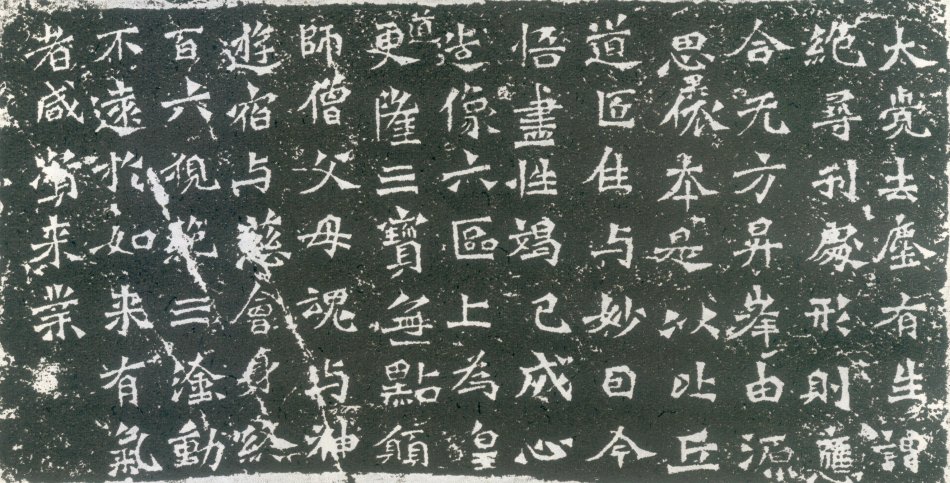 大覺去塵有生謂
絶尋刋處形則應
合无方昇峯由源
思本是以比丘
道匠住与妙因今
悟盡性竭己成心
造像六區上為皇
道更隆三寶無點願
師僧父母魂与神
遊宿与慈會身終
百六視絶三塗動
不遠於如来有氣
者咸資来業